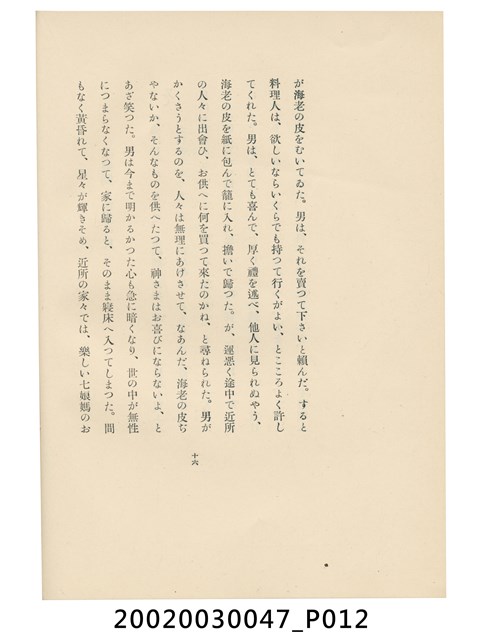 が海老の皮をむいてゐた。男は、それを賣つて下さいと賴んだ。すると
料理人は、欲しいならいくらでも持つて行くがよい、とこころよく許し
てくれた。男は、とても喜んで、厚く禮を述べ、他人に見られぬやう、
海老の皮を紙に包んで籠に入れ、擔いで歸つた。が、運惡く途中で近所
の人々に出會ひ、お供へに何を買つて來たのかね、と尋ねられた。男が
かくさうとするのを、人々は無理にあけさせて、なあんだ、海老の皮ぢ
やないか、そんなものを供へたつて、神さまはお喜びにならないよ、と
あざ笑つた。男は今まで明かるかつた心も急に暗くなり、世の中が無性
につまらなくなつて、家に歸ると、そのまま寢床へ入つてしまつた。間
もなく黃昏れて、星々が輝きそめ、近所の家々では、樂しい七娘媽のお
十六
20020030047_P012